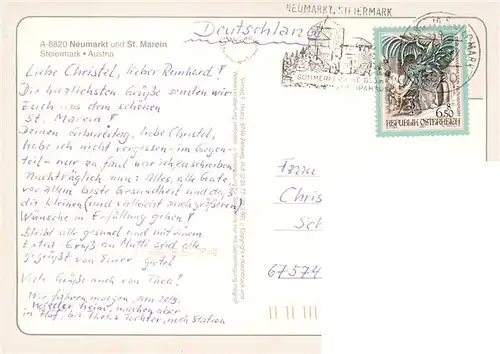 A-8820 Neumarkt und St. Marein
Steiermark • Austria
Deutschland
NEUMARKT, STEIERMARK
SOMMERFRISCHE
6.50
REPUBLIK ÖSTERREICH
Liebe Christel, lieber Reinhard!
Die herzlichsten Grüße senden wir
Euch aus dem schönen
St. Marein!
Deinen Geburtstag, liebe Christel,
habe ich nicht vergessen - im Gegen
teil - nur zu faul war ich zu schreiben.
Nachträglich nun: Alles, alles Gute,
vor allem beste Gesundheit und daß
die kleinen (und vielleicht auch größeren)
Wünsche in Erfüllung gehen!
Bleibt alle gesund und mit einem
Extra Gruß an Mutti seid alle
gegrüßt von Eurer
Viele Grüße auch von Theo!
Wir fahren morgen, am 20/9.
wieder heim, machen aber
in Hof, bei Theos Tochter, noch Station
Frau
Chris
Sch
67574